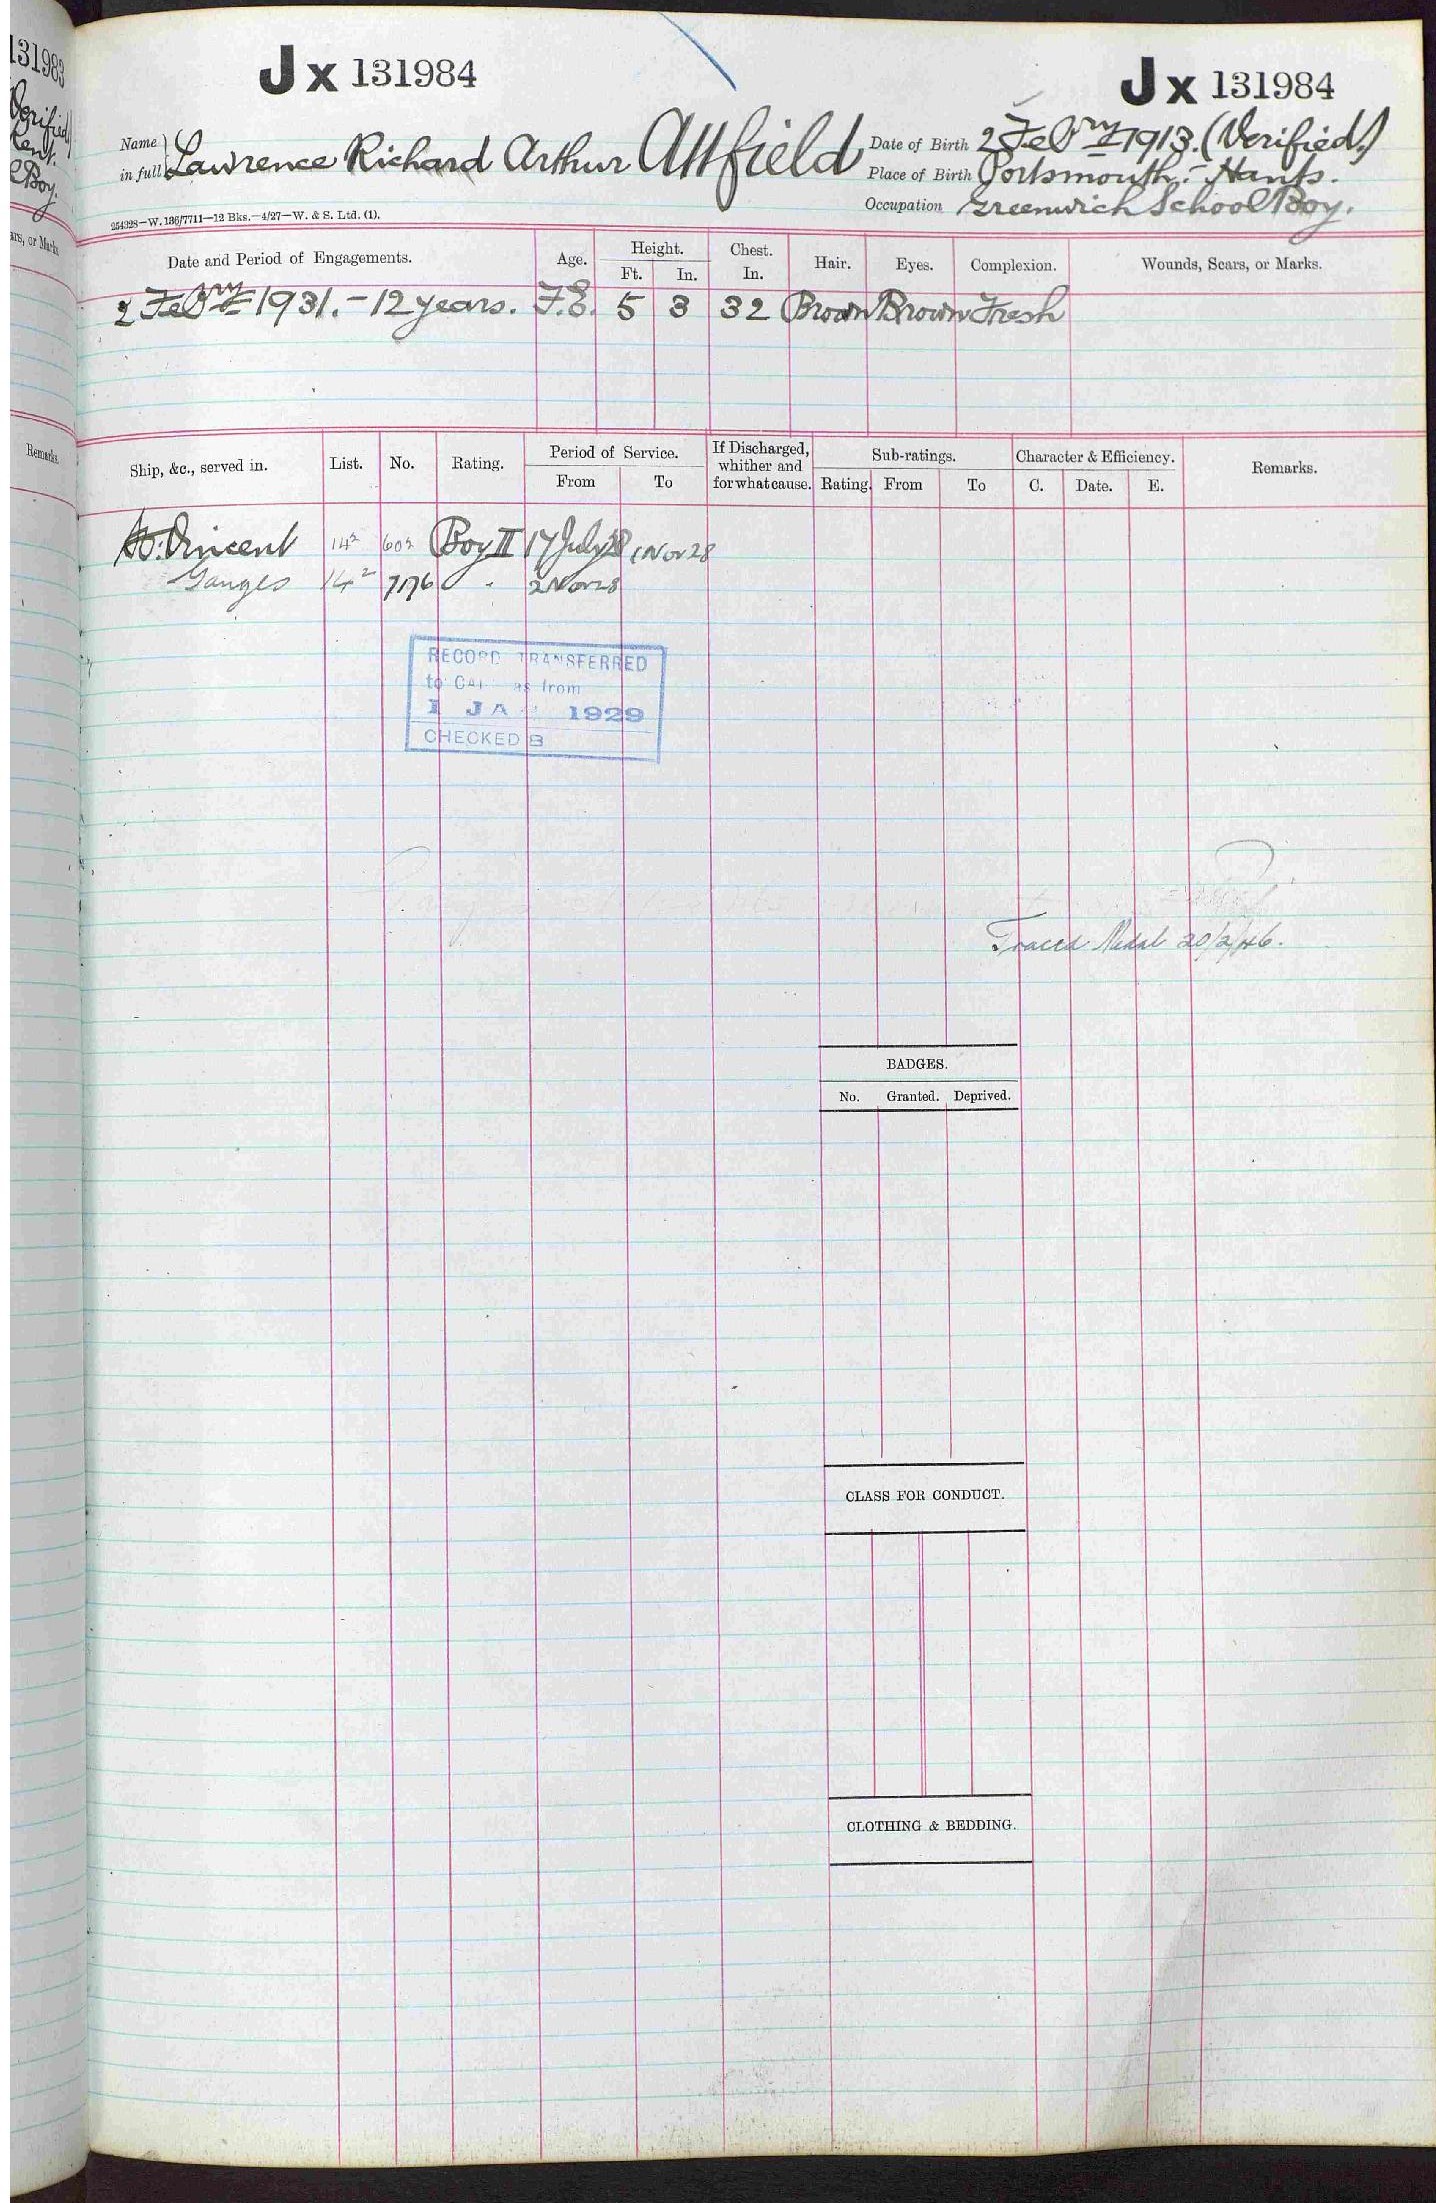 131983
Verified)
Kent.
Boy.
ars, or Marks
Remarks.
Jx 131984
Jx 131984
Name in full Lawrence Richard Arthur Attfield
Date of Birth 2 Febry 1913. (Verified.)
Place of Birth Portsmouth. - Hants.
Occupation Greenwich School Boy.
254328—W. 136/7711—12 Bks.—4/27—W. & S. Ltd. (1).
Date and Period of Engagements. Age. Height. Chest. Hair. Eyes. Complexion. Wounds, Scars, or Marks.
Ft. In. In.
2 Febry 1931. - 12 years. F.E. 5 3 32 Brown Brown Fresh
Ship, &c., served in. List. No. Rating. Period of Service. If Discharged, whither and for what cause. Sub-ratings. Character & Efficiency. Remarks.
From To Rating. From To C. Date. E.
St. Vincent 14² 602 Boy II 17 July 28 1 Nov 28
Ganges 14² 7176 " 2 Nov 28
RECORD TRANSFERRED
to as from
1 JA 1929
CHECKED B
Traced Medal 20/2/46.
BADGES.
No. Granted. Deprived.
CLASS FOR CONDUCT.
CLOTHING & BEDDING.